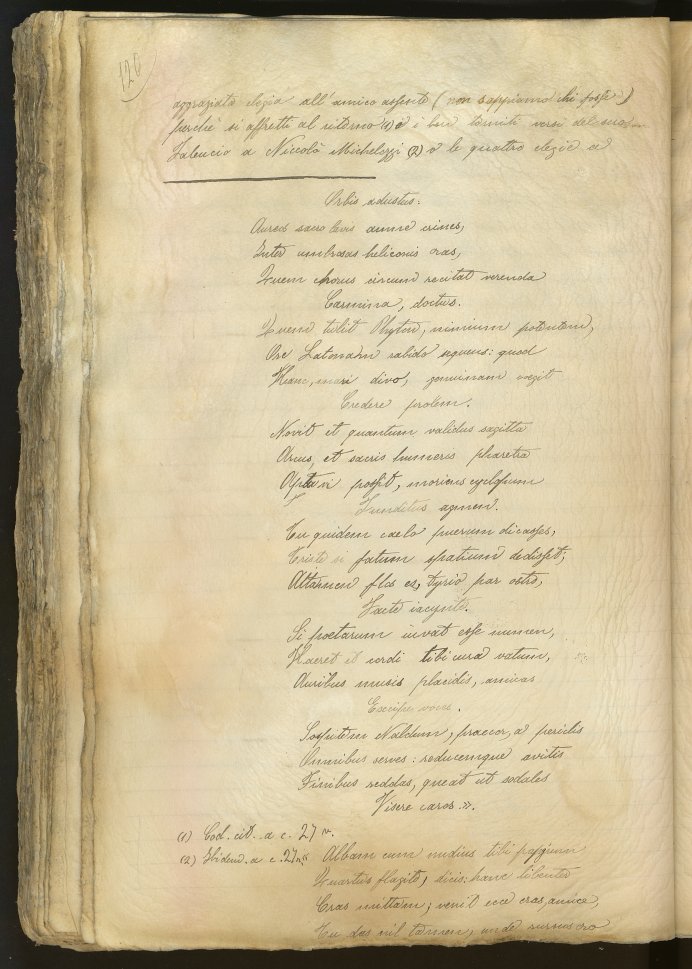 120
aggraziata elegia all'amico assente (non sappiamo chi fosse)
perchè si affretti al ritorno (1) e i ben torniti versi del suo
Faleucio a Niccolò Michelozzi (2) o le quattro elegie a
Orbis adustus:
Aureos sacro lavis amne crines,
Inter umbrosas heliconis oras,
Quem chorus circum recitat verenda
Carmina, doctus.
Quem tulit Phyton, nimium potentem,
Ore Latonam rabido sequens: quod
Hanc, mari divo, geminam coegit
Credere prolem.
Novit et quantum validus sagitta
Arcus, et sacris humeris pharetra
Aptari possit, moriens cyclopum
Funditus agmen.
Tu quidem caelo puerum dicasses,
Triste si fatum spatium dedisset;
Attamen flos es, tyrio par ostro,
Facte iacynte.
Si poetarum iuvat esse numen,
Haeret et cordi tibi cura vatum,
Auribus musis placidis, amicas
Excipe voces.
Sospitem Naldum, praecor, a periclis
Omnibus serves: reducemque avitis
Finibus reddas, queat ut sodales
Visere caros.».
(1) Cod. cit. a c. 27 v.
(2) Ibidem. a c. 27 v. « Albam cum nudius tibi papyrum
Quartus flagito, dicis: hanc libenter
Cras mittam; venit ecce cras, amice,
Tu das nil tamen, unde rursus oro